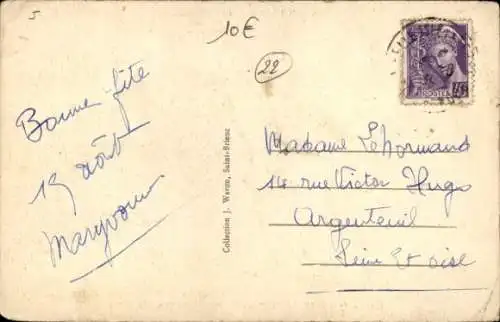 5
10€
22
Bonne fête
15 août
Maryvonne
Collection J. Waron, Saint-Brieuc
Madame Lehormand
14 rue Victor Hugo
Argenteuil
Seine et oise
POSTES